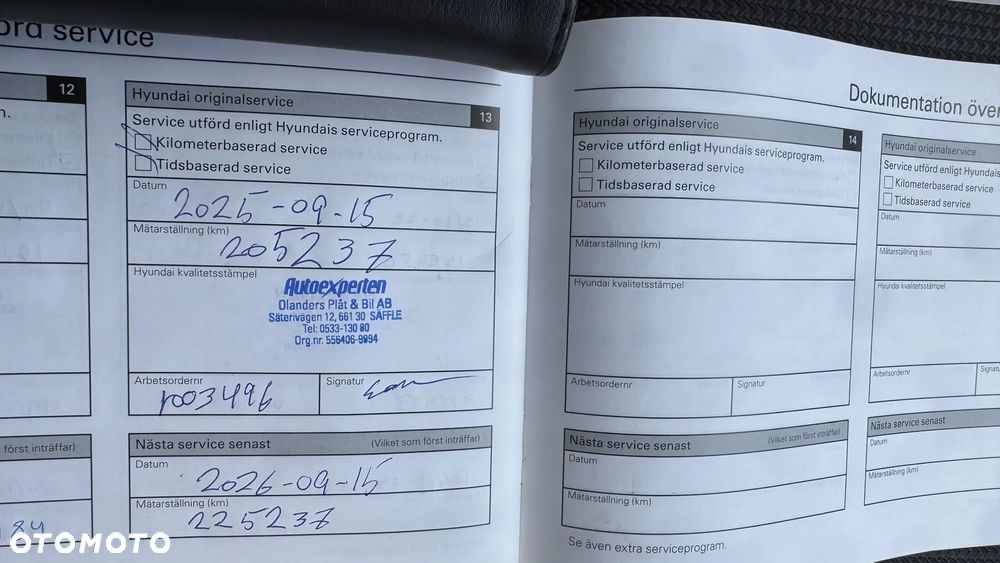 örd service
12
n.
först inträffar)
184
Hyundai originalservice
13
Service utförd enligt Hyundais serviceprogram.
Kilometerbaserad service
Tidsbaserad service
Datum
2025-09-15
Mätarställning (km)
205237
Hyundai kvalitetsstämpel
Autoexperten
Olanders Plåt & Bil AB
Säterivägen 12, 661 30 SÄFFLE
Tel: 0533-130 80
Org.nr. 556406-9994
Arbetsordernr
1003496
Signatur
Nästa service senast
(Vilket som först inträffar)
Datum
2026-09-15
Mätarställning (km)
225237
Dokumentation över
Hyundai originalservice
14
Service utförd enligt Hyundais serviceprogram.
Kilometerbaserad service
Tidsbaserad service
Datum
Mätarställning (km)
Hyundai kvalitetsstämpel
Arbetsordernr
Signatur
Nästa service senast
(Vilket som först inträffar)
Datum
Mätarställning (km)
Se även extra serviceprogram.
Hyundai originalservice
Service utförd enligt Hyundais
Kilometerbaserad service
Tidsbaserad service
Datum
Mätarställning (km)
Hyundai kvalitetsstämpel
Arbetsordernr
Signat
Nästa service senast
Datum
Mätarställning (km)
OTOMOTO